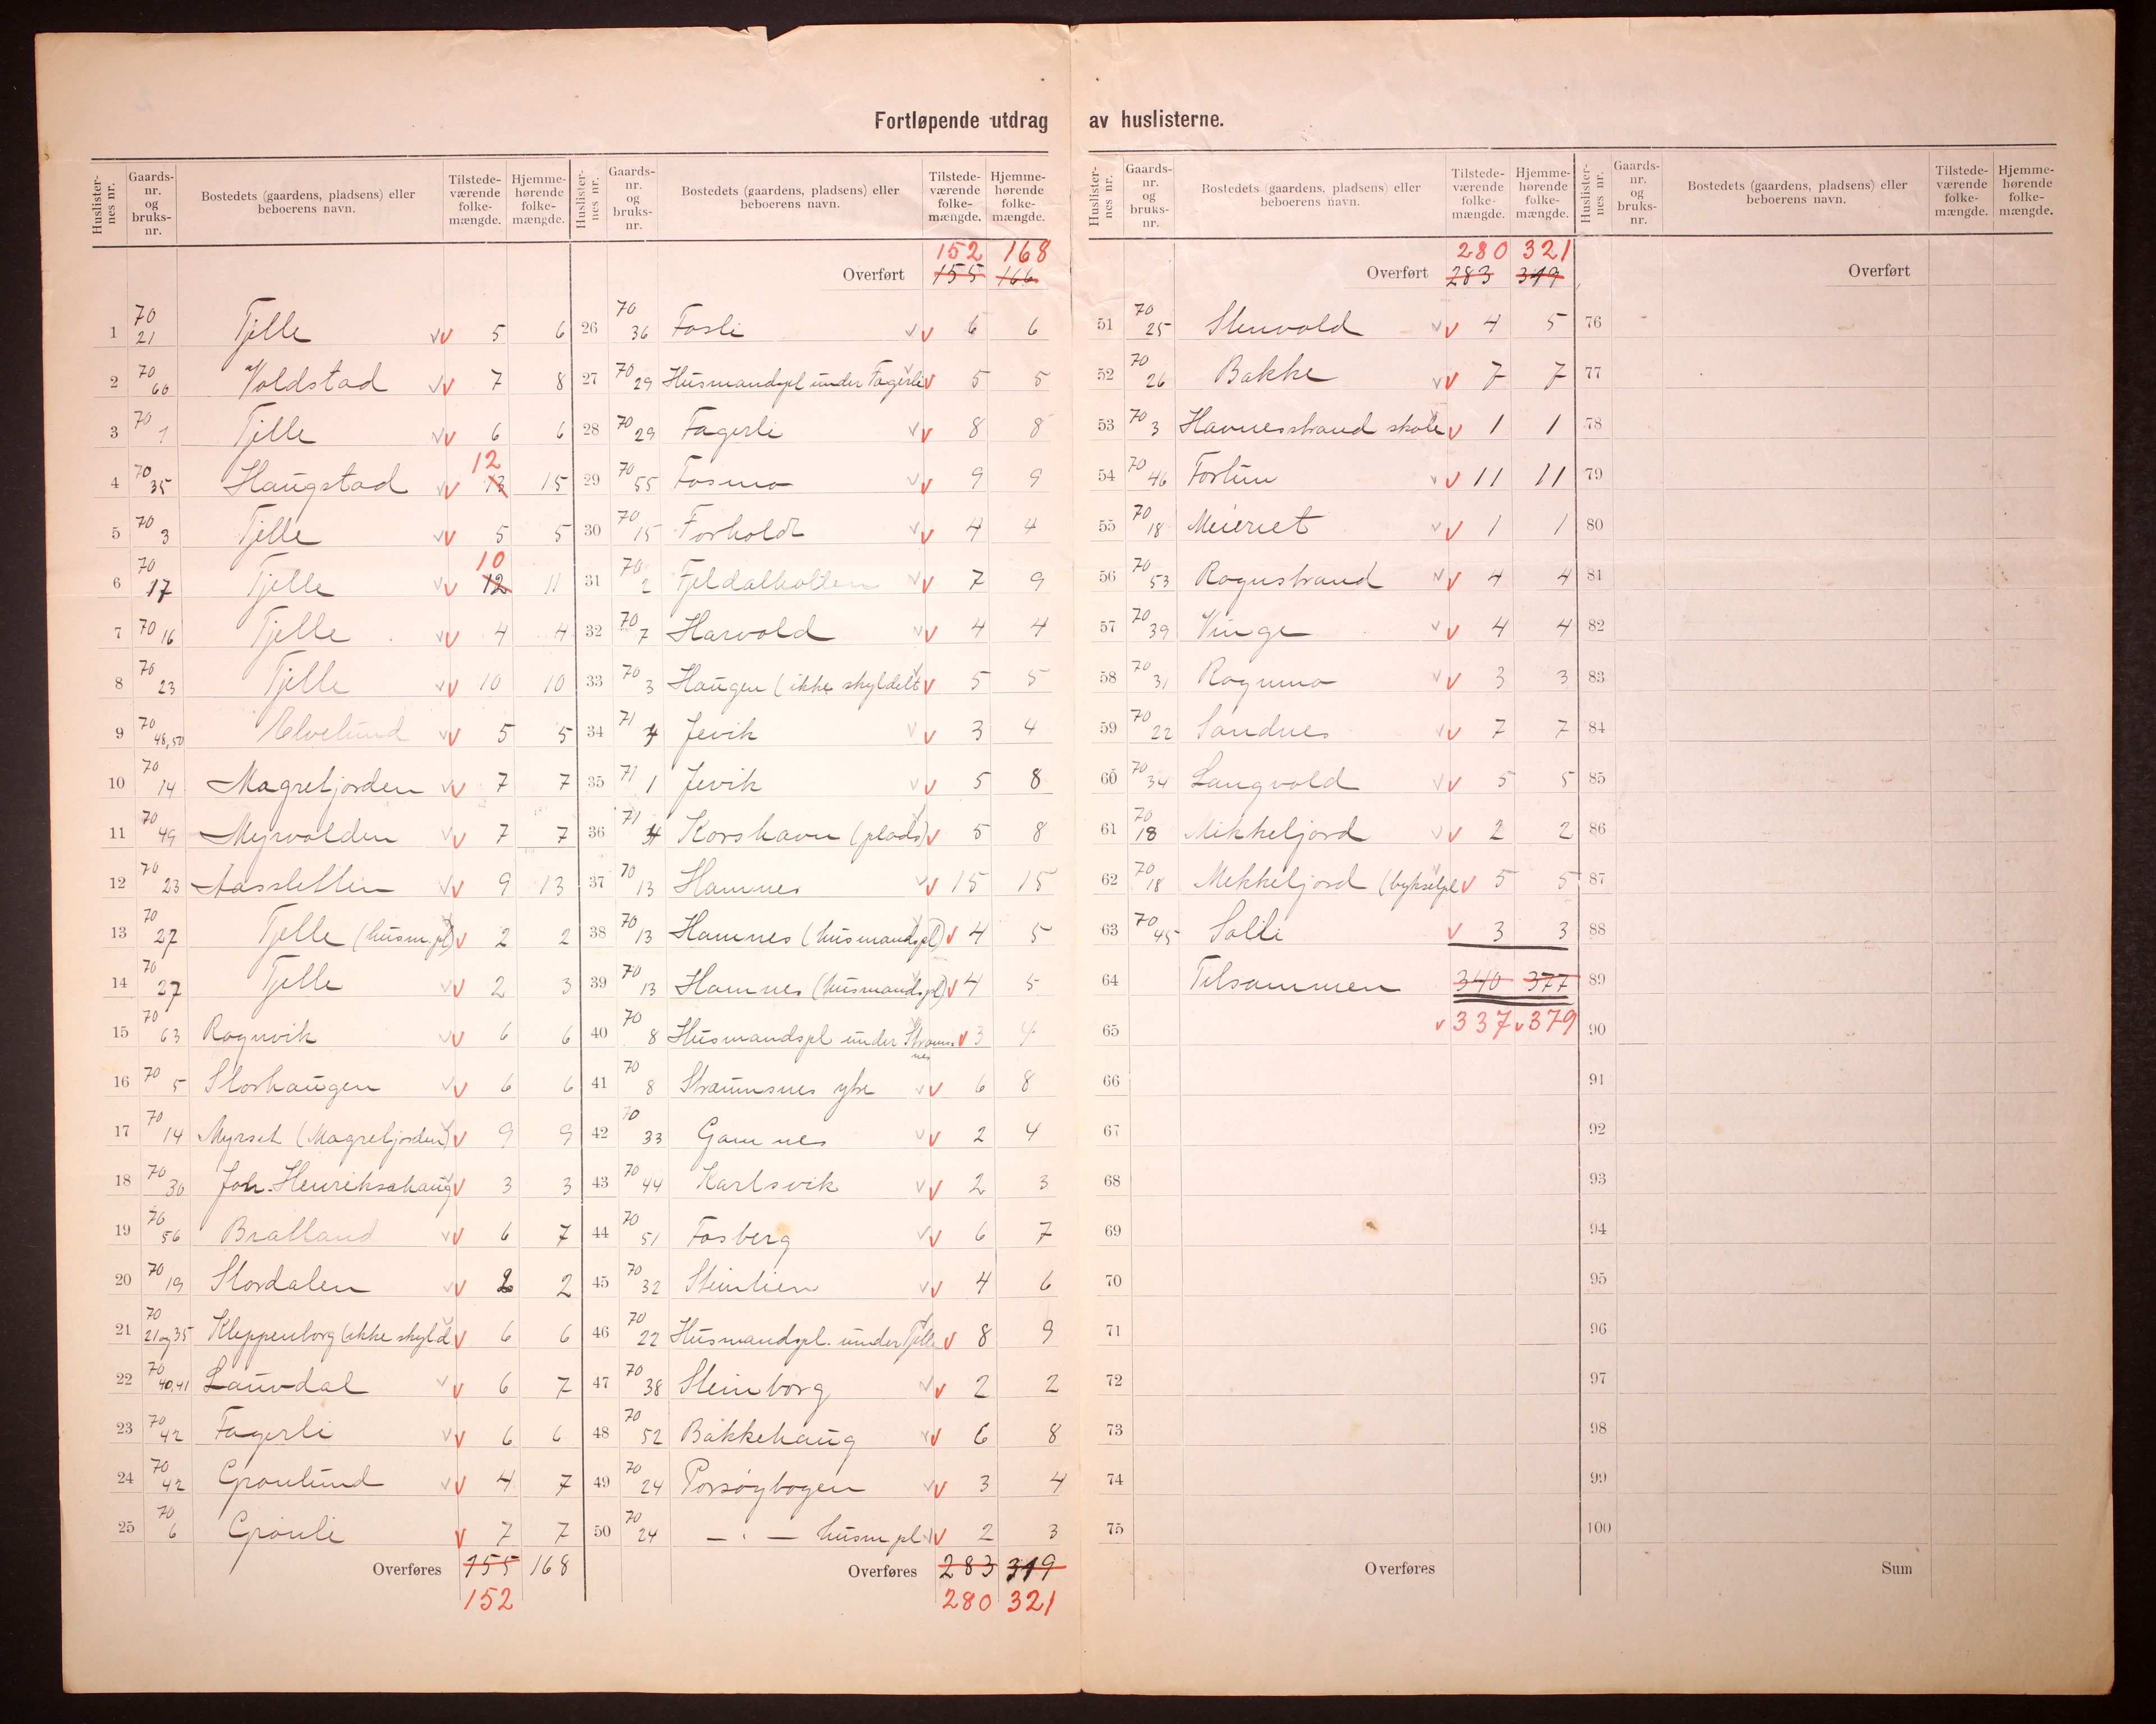 Fortløpende utdrag av huslisterne.
Huslisternes nr. Gaards-nr. og bruks-nr. Bostedets (gaardens, pladsens) eller beboerens navn. Tilstedeværende folkemængde. Hjemmehørende folkemængde.
1 70 21 Tjelle 5 6
2 70 60 Voldstad 7 8
3 70 1 Tjelle 6 6
4 70 35 Haugstad 13 12 15
5 70 3 Tjelle 5 5
6 70 17 Tjelle 12 10 11
7 70 16 Tjelle 4 4
8 70 23 Tjelle 10 10
9 70 48,50 Elvelund 5 5
10 70 14 Magretjorden 7 7
11 70 49 Myrvolden 7 7
12 70 23 Aassletten 9 13
13 70 27 Tjelle (husm.pl) 2 2
14 70 27 Tjelle 2 3
15 70 63 Rognvik 6 6
16 70 5 Storhaugen 6 6
17 70 14 Myrset (Magretjorden) 9 9
18 70 30 Joh. Henrikschaug 3 3
19 70 56 Bratland 6 7
20 70 19 Stordalen 2 2
21 70 21og35 Kleppenborg (ikke skyld 6 6
22 70 40,41 Lauvdal 6 7
23 70 42 Fagerli 6 6
24 70 42 Grønlund 4 7
25 70 6 Grønli 7 7
Overføres 155 168
152
Huslisternes nr. Gaards-nr. og bruks-nr. Bostedets (gaardens, pladsens) eller beboerens navn. Tilstedeværende folkemængde. Hjemmehørende folkemængde.
152 168
Overført 155 166
26 70 36 Fosli 6 6
27 70 29 Husmandspl under Fagerli 5 5
28 70 29 Fagerli 8 8
29 70 55 Fosmo 9 9
30 70 15 Forholdt 4 4
31 70 2 Fjeldalholten 7 9
32 70 7 Harvold 4 4
33 70 3 Haugen (ikke skyldelt 5 5
34 71 4 Jevik 3 4
35 71 1 Jevik 5 8
36 71 4 Korshavn (plads) 5 8
37 70 13 Hamnes 15 15
38 70 13 Hamnes (husmandspl) 4 5
39 70 13 Hamnes (husmandspl) 4 5
40 70 8 Husmandspl under Straumsnes 3 4
41 70 8 Straumsnes ytre 6 8
42 70 33 Gamnes 2 4
43 70 44 Karlsvik 2 3
44 70 51 Fosberg 6 7
45 70 32 Steinlien 4 6
46 70 22 Husmandspl. under Tjelle 8 9
47 70 38 Steinborg 2 2
48 70 52 Bakkehaug 6 8
49 70 24 Porsøybogen 3 4
50 70 24 — " — husm pl. 2 3
Overføres 283 319
280 321
Huslisternes nr. Gaards-nr. og bruks-nr. Bostedets (gaardens, pladsens) eller beboerens navn. Tilstedeværende folkemængde. Hjemmehørende folkemængde.
280 321
Overført 283 319
51 70 25 Stenvold 4 5
52 70 26 Bakke 7 7
53 70 3 Havnesstrand skole 1 1
54 70 46 Fortun 11 11
55 70 18 Meieriet 1 1
56 70 53 Rognstrand 4 4
57 70 39 Vinge 4 4
58 70 31 Rognmo 3 3
59 70 22 Sandnes 7 7
60 70 34 Langvold 5 5
61 70 18 Mikkeljord 2 2
62 70 18 Mekkeljord (bykselpl 5 5
63 70 45 Solli 3 3
64 Tilsammen 340 377
65 337 379
66
67
68
69
70
71
72
73
74
75
Overføres
Huslisternes nr. Gaards-nr. og bruks-nr. Bostedets (gaardens, pladsens) eller beboerens navn. Tilstedeværende folkemængde. Hjemmehørende folkemængde.
Overført
76
77
78
79
80
81
82
83
84
85
86
87
88
89
90
91
92
93
94
95
96
97
98
99
100
Sum